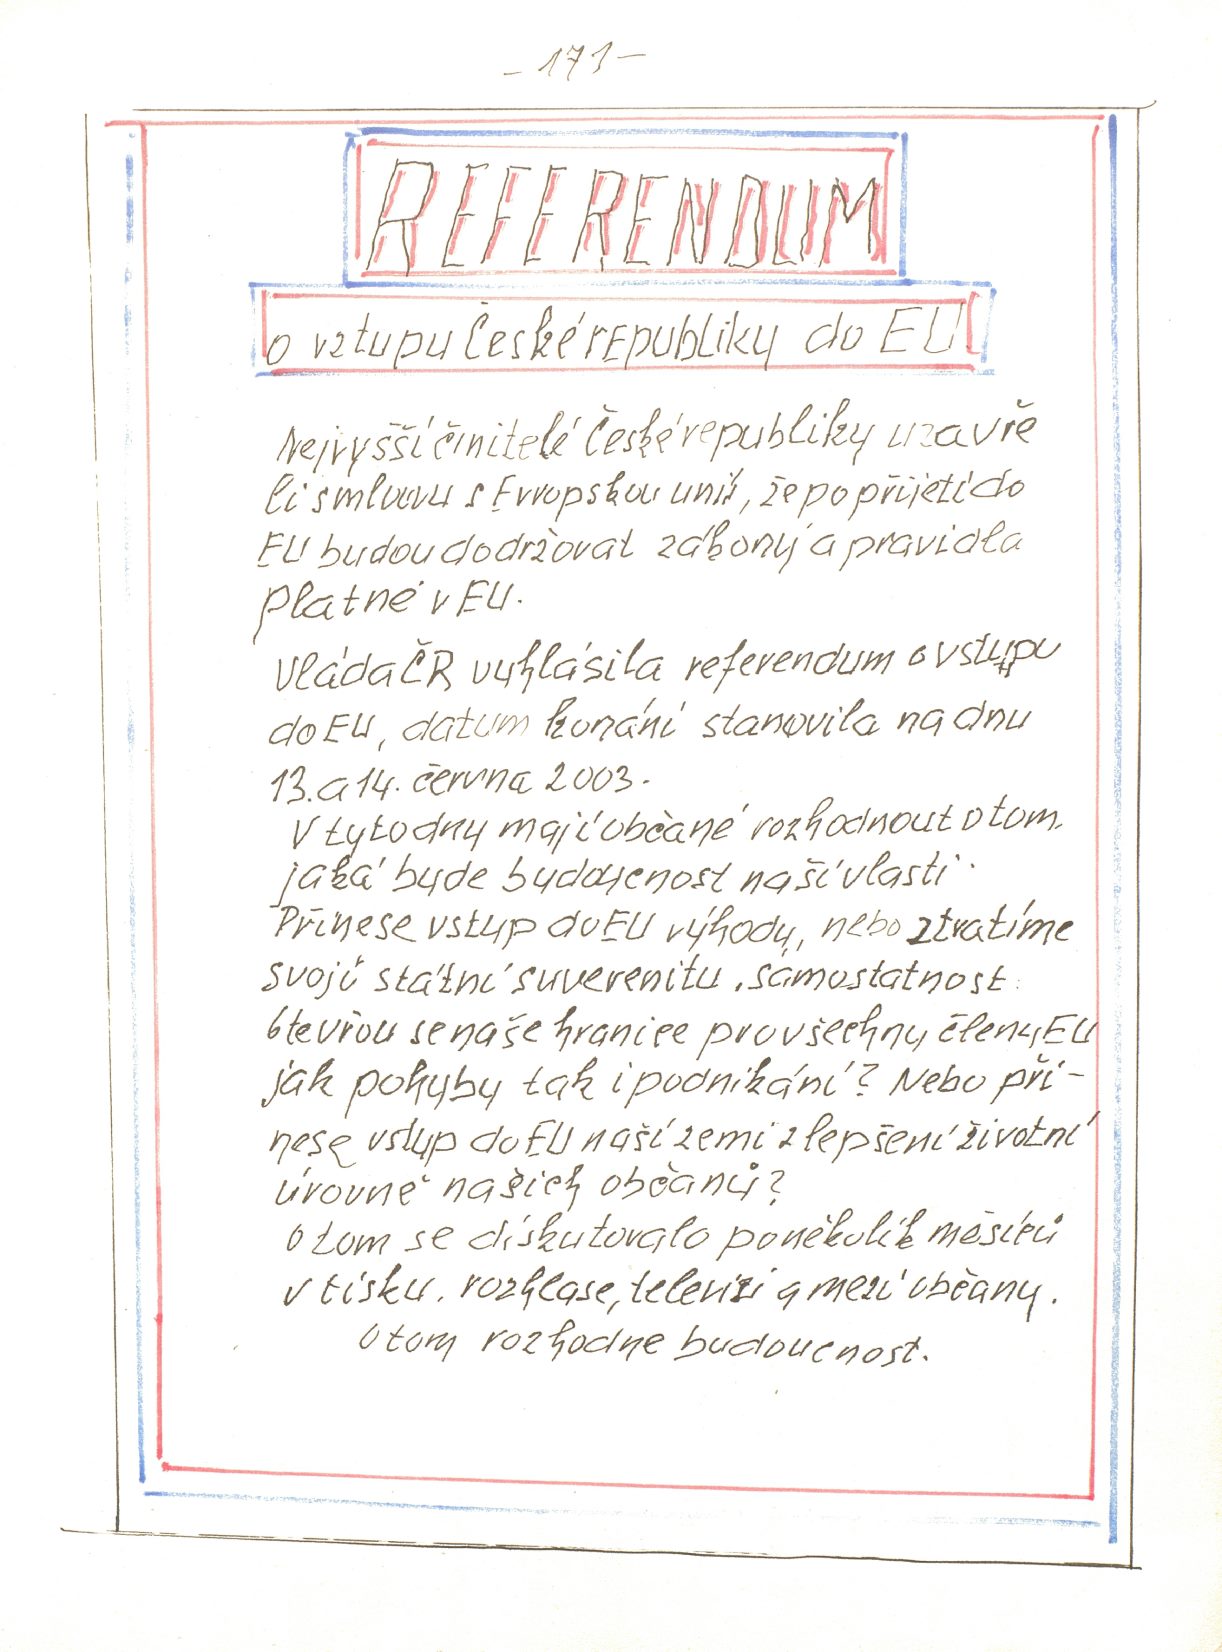 - 171 -
REFERENDUM
o vztupu České republiky do EU.
Nejvyšší činitelé České republiky uzavře
li smlouvu s Evropskou unií, že po přijetí do
EU budou dodržovat zákony a pravidla
platné v EU.
Vláda ČR vyhlásila referendum o vstupu
do EU, datum konání stanovila na dnu
13. a 14. června 2003.
V tyto dny mají občané rozhodnout o tom.
jaká byde budoucnost naší vlasti.
Přinese vstup do EU výhody, nebo ztratíme
svojí státní suverenitu, samostatnost.
Otevřou se naše hranice pro všechny členy EU
jak pohyby tak i podnikání? Nebo při-
nese vstup do EU naší zemi zlepšení životní
úrovně našich občanů?
O tom se diskutovalo po několik měsíců
v tisku, rozhlase, televizi a mezi občany.
O tom rozhodne budoucnost.